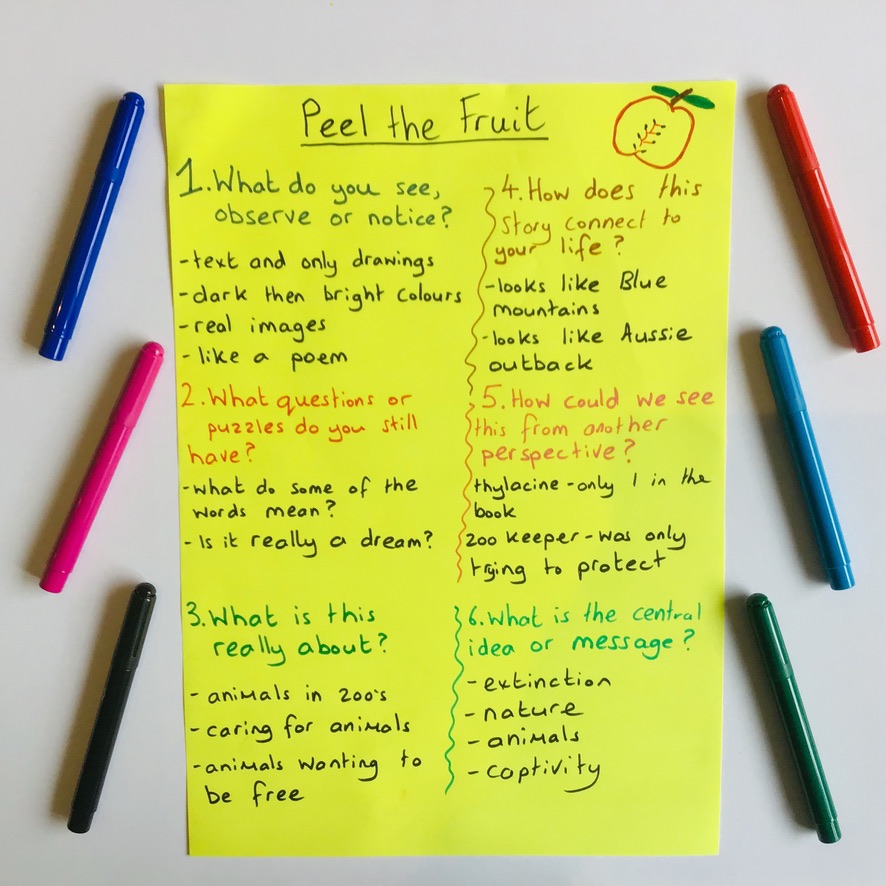 Peel the Fruit
1. What do you see,
observe or notice?
- text and only drawings
- dark then bright colours
- real images
- like a poem
2. What questions or
puzzles do you still
have?
- what do some of the
words mean?
- Is it really a dream?
3. What is this
really about?
- animals in zoo's
- caring for animals
- animals wanting to
be free
4. How does this
story connect to
your life?
- looks like Blue
mountains
- looks like Aussie
outback
5. How could we see
this from another
perspective?
thylacine - only 1 in the
book
zoo keeper - was only
trying to protect
6. What is the central
idea or message?
- extinction
- nature
- animals
- captivity